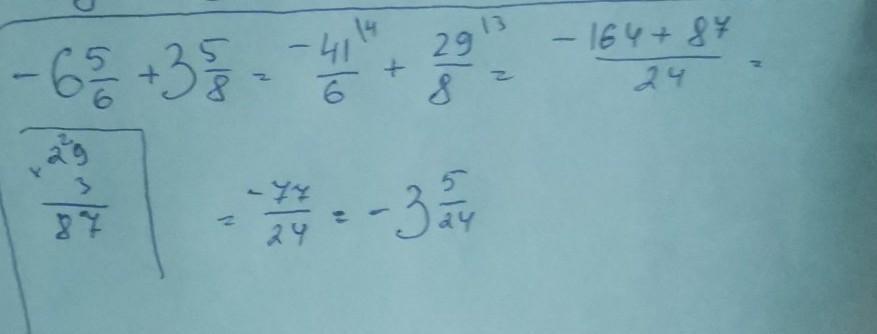 -6 5/6 + 3 5/8 = -41/6 \4 + 29/8 \3 = -164 + 87/24 =
2
× 29
3
87
= -77/24 = -3 5/24